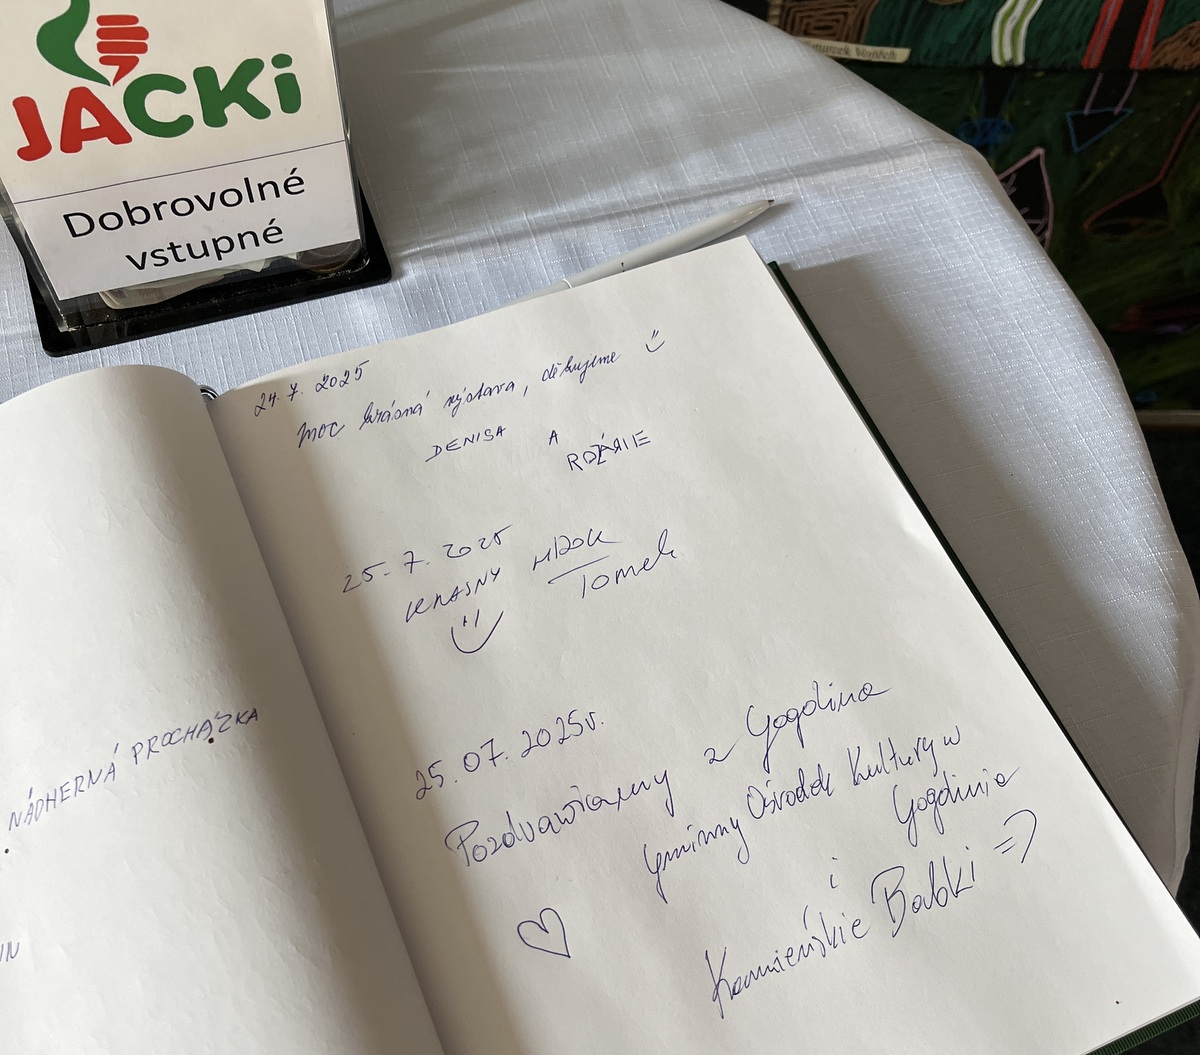 JACKi
Dobrovolné
vstupné
24.7.2025
moc krásná výstava, děkujeme
DENISA A ROZÁRIE
25.7.2025
KRASNY
Tomek
NÁDHERNÁ PROCHÁZKA
25.07.2025r.
Pozdrawiamy z Gogolina
Gminny Ośrodek Kultury w
Gogolinie
i
Kamieńskie Babki =>